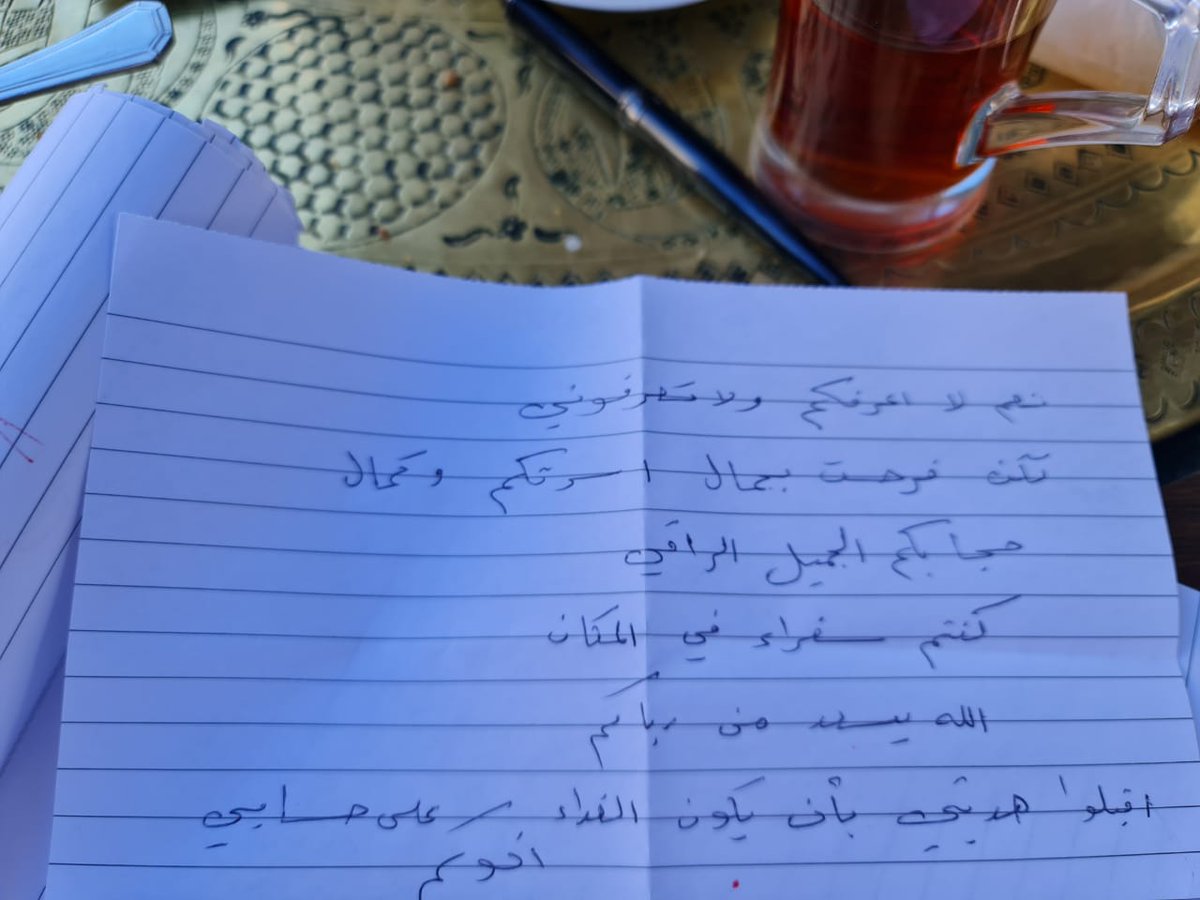 نعم لا اعرفكم ولا تعرفوني
لكن فرحت بجمال اسرتكم وكمال
حجابكم الجميل الراقي
كنتم سفراء في المكان
الله يسعد من رباكم
اقبلوا هديتي بأن يكون الغداء على حسابي
اخوكم